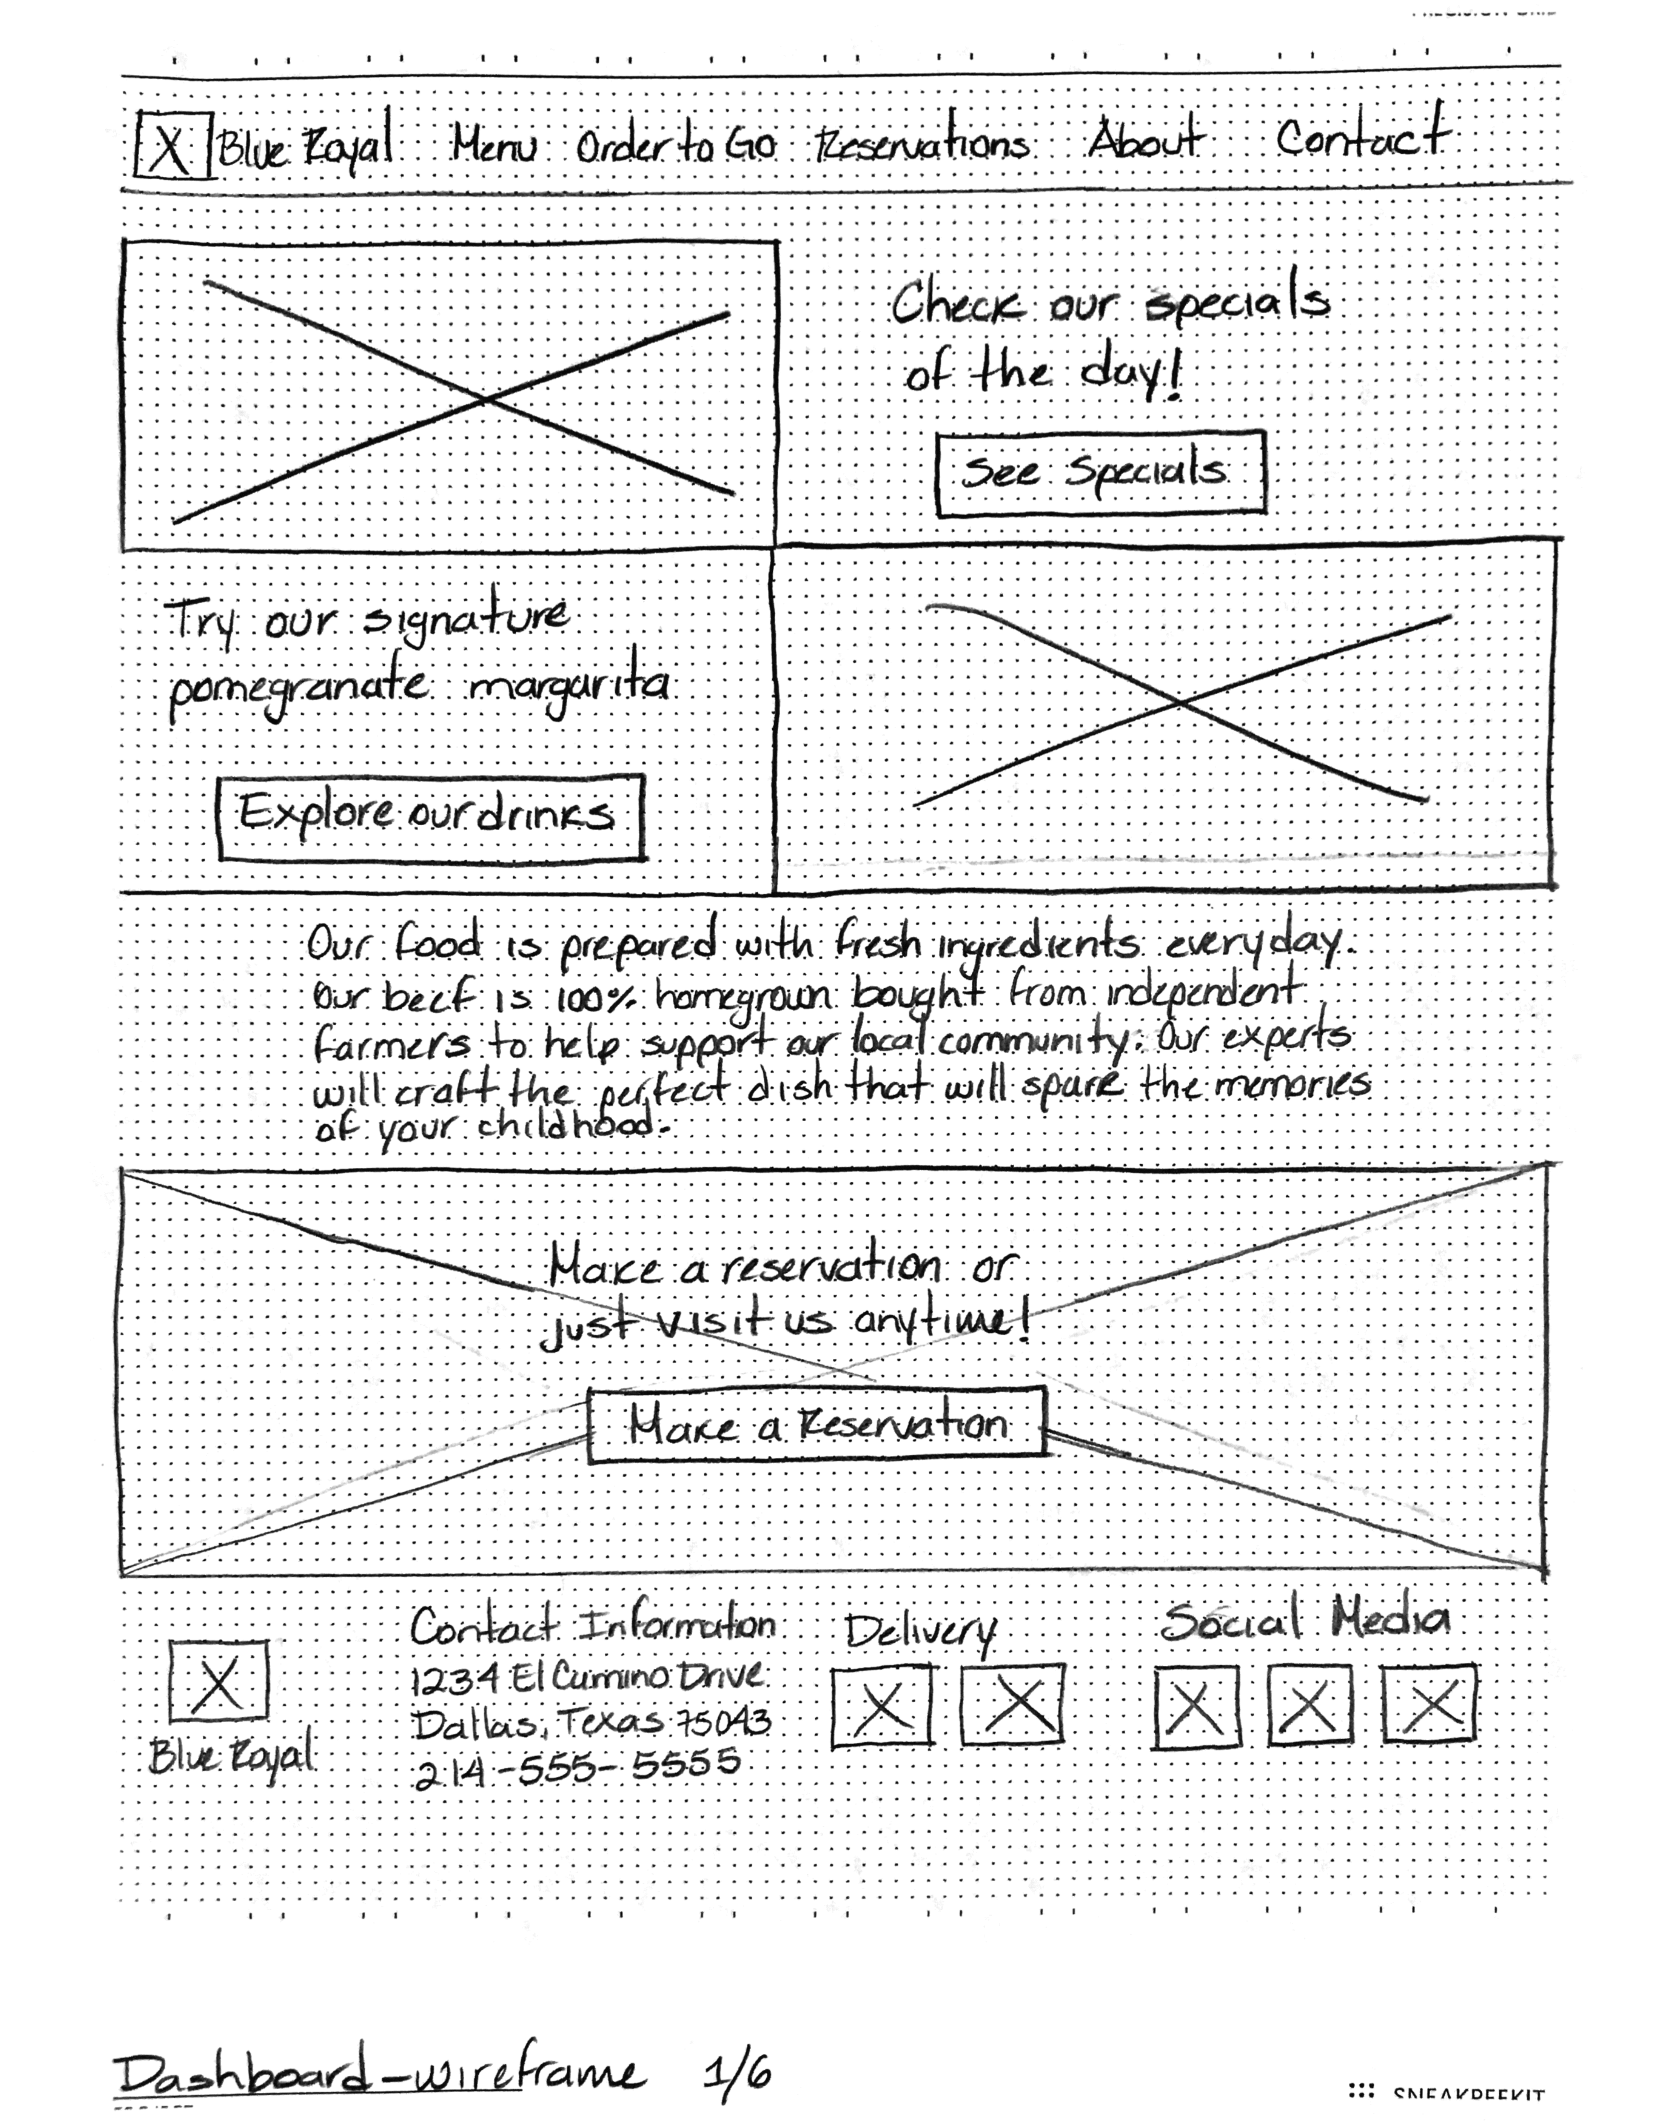 Blue Royal Menu Order to Go Reservations About Contact
Check our specials
of the day!
See Specials
Try our signature
pomegranate margarita
Explore our drinks
Our food is prepared with fresh ingredients everyday.
Our beef is 100% homegrown bought from independent
farmers to help support our local community. Our experts
will craft the perfect dish that will spark the memories
of your childhood.
Make a reservation or
just visit us anytime!
Make a Reservation
Blue Royal
Contact Information
1234 El Camino Drive
Dallas, Texas 75043
214-555-5555
Delivery
Social Media
Dashboard-wireframe 1/6
SNEAKPEEKIT